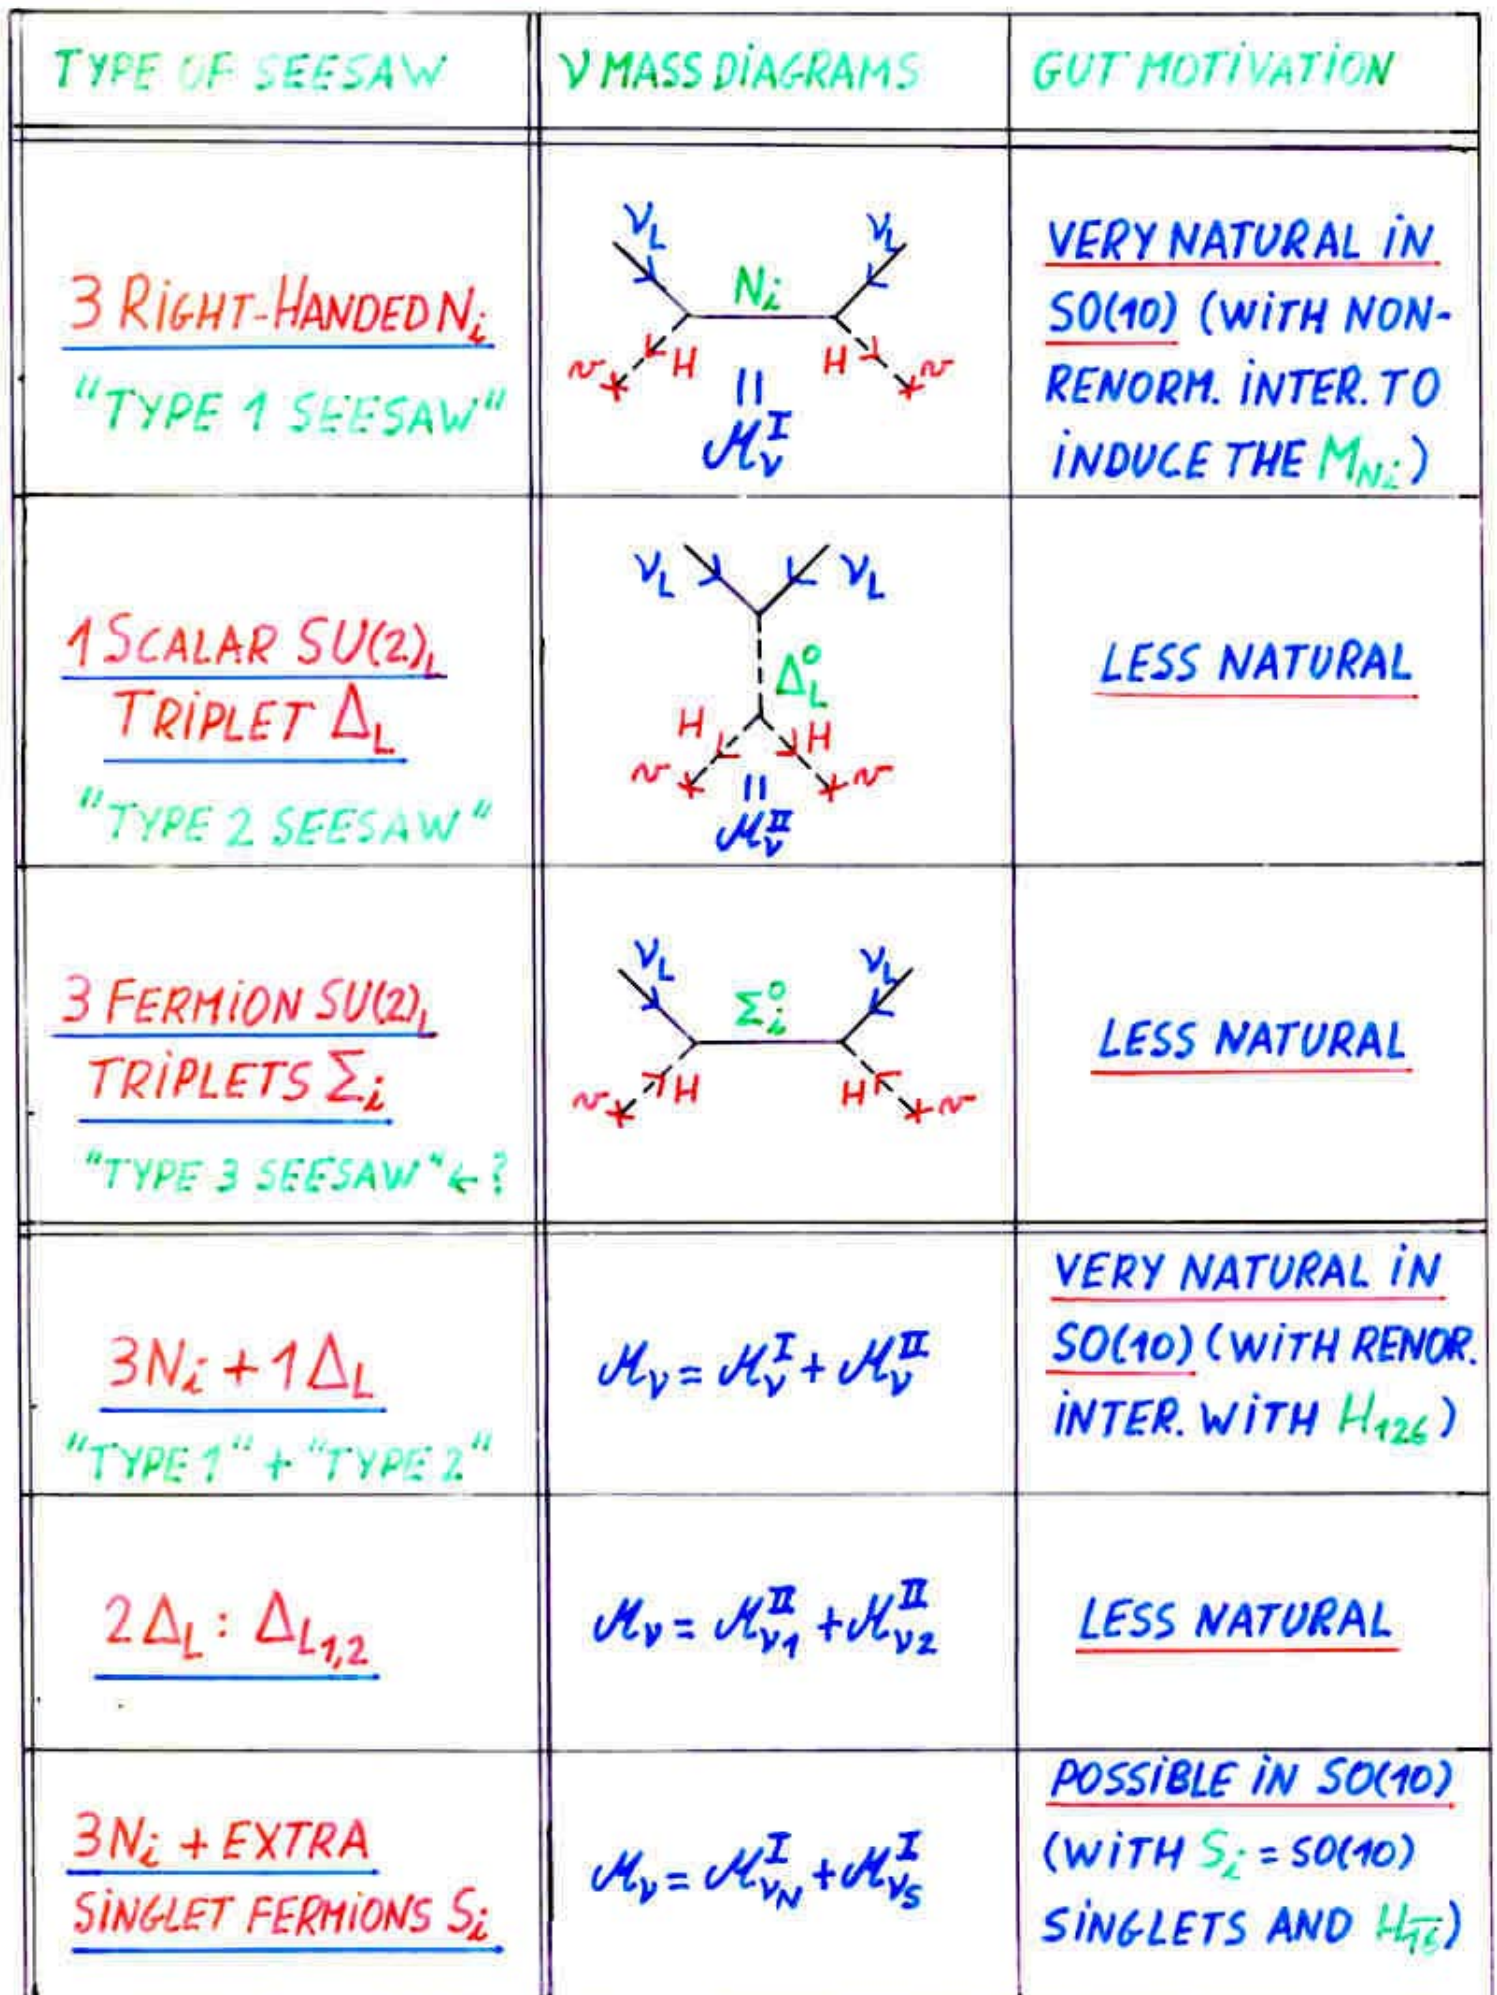 TYPE OF SEESAW
ν MASS DIAGRAMS
GUT MOTIVATION
3 RIGHT-HANDED Nᵢ
"TYPE 1 SEESAW"
ν_L ν_L
N_i
v H H v
=
M_ν^I
VERY NATURAL IN
SO(10) (WITH NON-
RENORM. INTER. TO
INDUCE THE M_{Ni})
1 SCALAR SU(2)_L
TRIPLET Δ_L
"TYPE 2 SEESAW"
ν_L ν_L
Δ_L^0
H H
v v
=
M_ν^II
LESS NATURAL
3 FERMION SU(2)_L
TRIPLETS Σ_i
"TYPE 3 SEESAW" ← ?
ν_L ν_L
Σ_i^0
v H H v
LESS NATURAL
3N_i + 1Δ_L
"TYPE 1" + "TYPE 2"
M_ν = M_ν^I + M_ν^II
VERY NATURAL IN
SO(10) (WITH RENOR.
INTER. WITH H_126)
2Δ_L : Δ_{L1,2}
M_ν = M_{ν1}^II + M_{ν2}^II
LESS NATURAL
3N_i + EXTRA
SINGLET FERMIONS S_i
M_ν = M_{ν_N}^I + M_{ν_S}^I
POSSIBLE IN SO(10)
(WITH S_i = SO(10)
SINGLETS AND H_{\overline{16}})